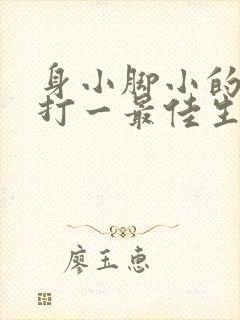 身小脚小的
打一最佳生
廖玉惠